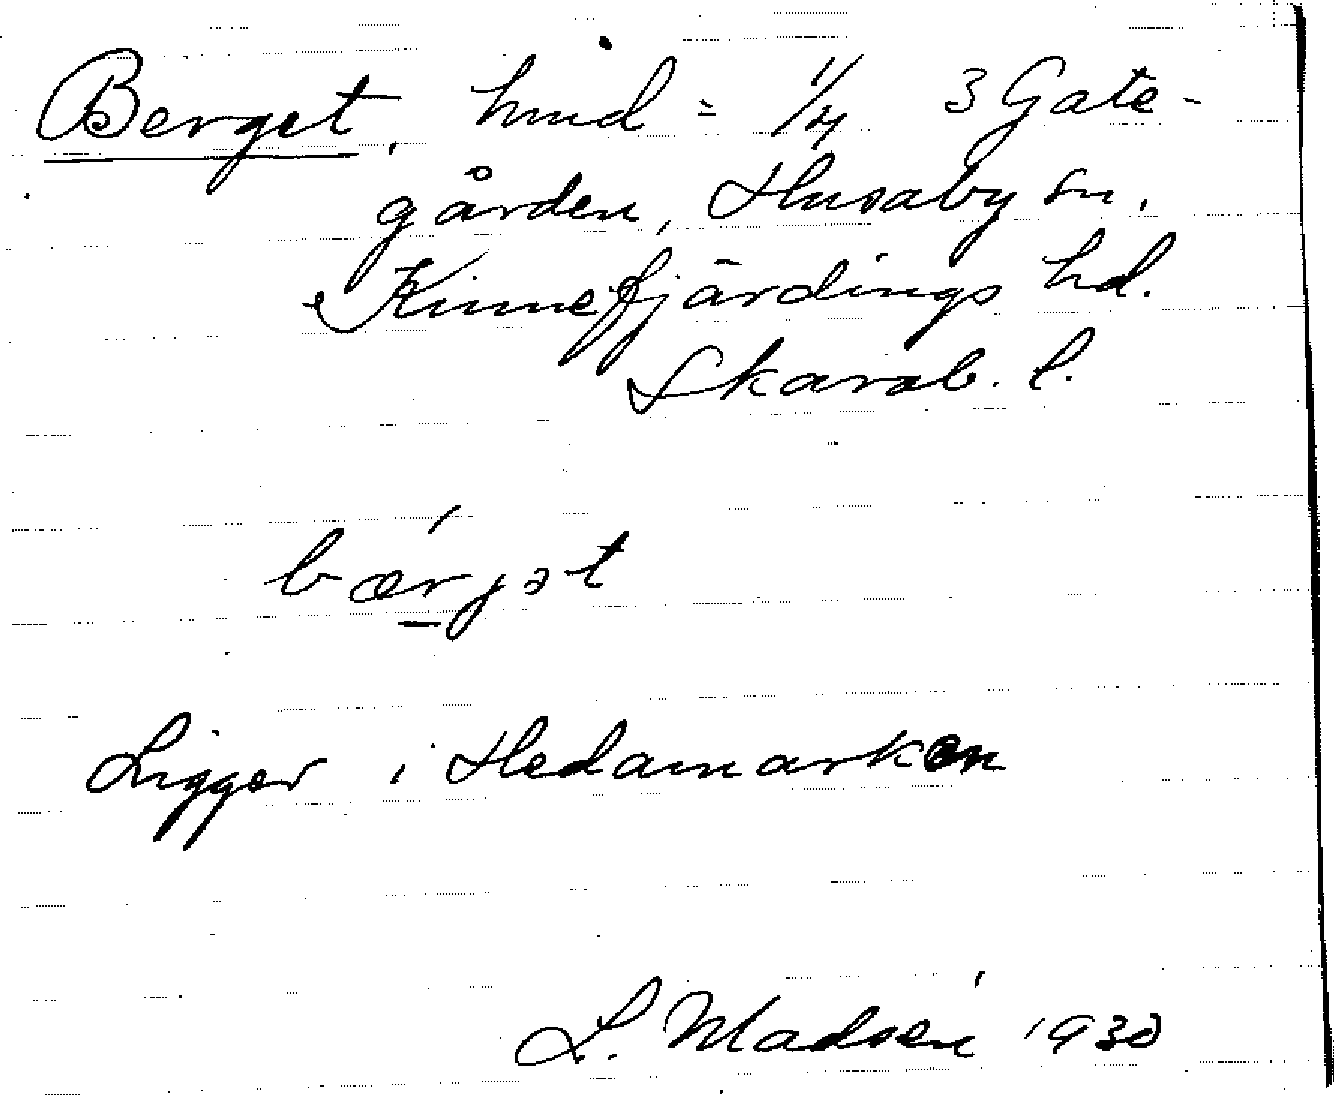 Berget, hmd = 1/4 3 Gate-
gården, Husaby sn.
Kinnefjärdings hd.
Skarab. l.
bærjət
Ligger i Hedamarken
L. Madsén 1930